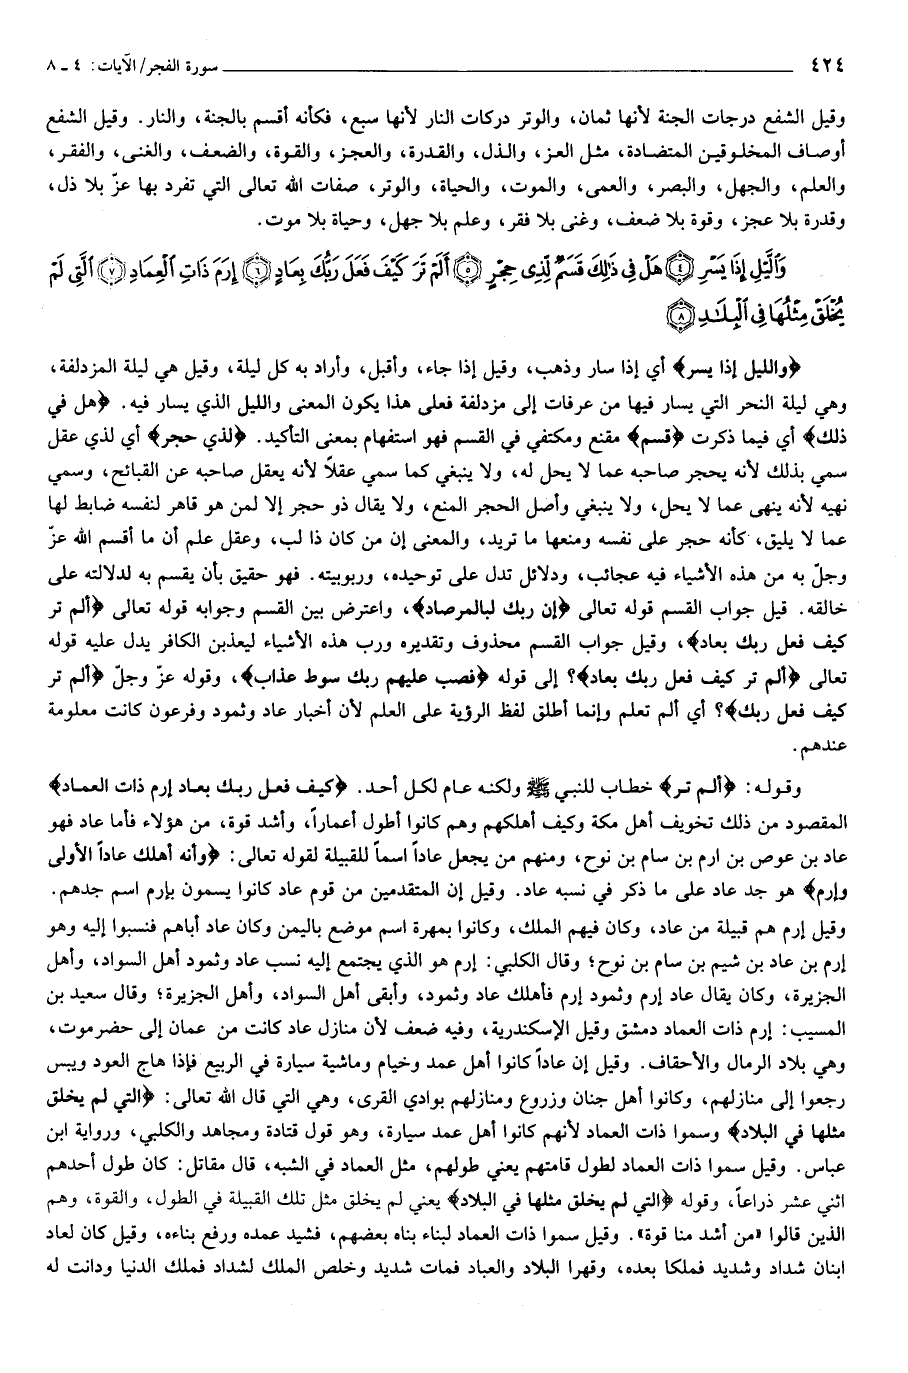 ٤٢٤ سورة الفجر/ الآيات: ٤ ـ ٨
وقيل الشفع درجات الجنة لأنها ثمان، والوتر دركات النار لأنها سبع، فكأنه أقسم بالجنة، والنار. وقيل الشفع
أوصاف المخلوقين المتضادة، مثل العز، والذل، والقدرة، والعجز، والقوة، والضعف، والغنى، والفقر،
والعلم، والجهل، والبصر، والعمى، والموت، والحياة، والوتر، صفات الله تعالى التي تفرد بها عزّ بلا ذل،
وقدرة بلا عجز، وقوة بلا ضعف، وغنى بلا فقر، وعلم بلا جهل، وحياة بلا موت.
وَٱلَّيْلِ إِذَا يَسْرِ ٤ هَلْ فِى ذَٰلِكَ قَسَمٌ لِّذِى حِجْرٍ ٥ أَلَمْ تَرَ كَيْفَ فَعَلَ رَبُّكَ بِعَادٍ ٦ إِرَمَ ذَاتِ ٱلْعِمَادِ ٧ ٱلَّتِى لَمْ
يُخْلَقْ مِثْلُهَا فِى ٱلْبِلَٰدِ ٨
﴿والليل إذا يسر﴾ أي إذا سار وذهب، وقيل إذا جاء، وأقبل، وأراد به كل ليلة، وقيل هي ليلة المزدلفة،
وهي ليلة النحر التي يسار فيها من عرفات إلى مزدلفة فعلى هذا يكون المعنى والليل الذي يسار فيه. ﴿هل في
ذلك﴾ أي فيما ذكرت ﴿قسم﴾ مقنع ومكتفي في القسم فهو استفهام بمعنى التأكيد. ﴿لذي حجر﴾ أي لذي عقل
سمي بذلك لأنه يحجر صاحبه عما لا يحل له، ولا ينبغي كما سمي عقلاً لأنه يعقل صاحبه عن القبائح، وسمي
نهيه لأنه ينهى عما لا يحل، ولا ينبغي وأصل الحجر المنع، ولا يقال ذو حجر إلا لمن هو قاهر لنفسه ضابط لها
عما لا يليق، كأنه حجر على نفسه ومنعها ما تريد، والمعنى إن من كان ذا لب، وعقل علم أن ما أقسم الله عزّ
وجلّ به من هذه الأشياء فيه عجائب، ودلائل تدل على توحيده، وربوبيته. فهو حقيق بأن يقسم به لدلالته على
خالقه. قيل جواب القسم قوله تعالى ﴿إن ربك لبالمرصاد﴾، واعترض بين القسم وجوابه قوله تعالى ﴿ألم تر
كيف فعل ربك بعاد﴾، وقيل جواب القسم محذوف وتقديره ورب هذه الأشياء ليعذبن الكافر يدل عليه قوله
تعالى ﴿ألم تر كيف فعل ربك بعاد﴾؟ إلى قوله ﴿فصب عليهم ربك سوط عذاب﴾، وقوله عزّ وجلّ ﴿ألم تر
كيف فعل ربك﴾؟ أي ألم تعلم وإنما أطلق لفظ الرؤية على العلم لأن أخبار عاد وثمود وفرعون كانت معلومة
عندهم.
وقوله: ﴿ألم تر﴾ خطاب للنبي ﷺ ولكنه عام لكل أحد. ﴿كيف فعل ربك بعاد إرم ذات العماد﴾
المقصود من ذلك تخويف أهل مكة وكيف أهلكهم وهم كانوا أطول أعماراً، وأشد قوة، من هؤلاء فأما عاد فهو
عاد بن عوص بن ارم بن سام بن نوح، ومنهم من يجعل عاداً اسماً للقبيلة لقوله تعالى: ﴿وأنه أهلك عاداً الأولى
وإرم﴾ هو جد عاد على ما ذكر في نسبه عاد. وقيل إن المتقدمين من قوم عاد كانوا يسمون بإرم اسم جدهم.
وقيل إرم هم قبيلة من عاد، وكان فيهم الملك، وكانوا بمهرة اسم موضع باليمن وكان عاد أباهم فنسبوا إليه وهو
إرم بن عاد بن شيم بن سام بن نوح؛ وقال الكلبي: إرم هو الذي يجتمع إليه نسب عاد وثمود أهل السواد، وأهل
الجزيرة، وكان يقال عاد إرم وثمود إرم فأهلك عاد وثمود، وأبقى أهل السواد، وأهل الجزيرة؛ وقال سعيد بن
المسيب: إرم ذات العماد دمشق وقيل الإسكندرية، وفيه ضعف لأن منازل عاد كانت من عمان إلى حضرموت،
وهي بلاد الرمال والأحقاف. وقيل إن عاداً كانوا أهل عمد وخيام وماشية سيارة في الربيع فإذا هاج العود ويبس
رجعوا إلى منازلهم، وكانوا أهل جنان وزروع ومنازلهم بوادي القرى، وهي التي قال الله تعالى: ﴿التي لم يخلق
مثلها في البلاد﴾ وسموا ذات العماد لأنهم كانوا أهل عمد سيارة، وهو قول قتادة ومجاهد والكلبي، ورواية ابن
عباس. وقيل سموا ذات العماد لطول قامتهم يعني طولهم، مثل العماد في الشبه، قال مقاتل: كان طول أحدهم
اثني عشر ذراعاً، وقوله ﴿التي لم يخلق مثلها في البلاد﴾ يعني لم يخلق مثل تلك القبيلة في الطول، والقوة، وهم
الذين قالوا «من أشد منا قوة». وقيل سموا ذات العماد لبناء بناه بعضهم، فشيد عمده ورفع بناءه، وقيل كان لعاد
ابنان شداد وشديد فملكا بعده، وقهرا البلاد والعباد فمات شديد وخلص الملك لشداد فملك الدنيا ودانت له